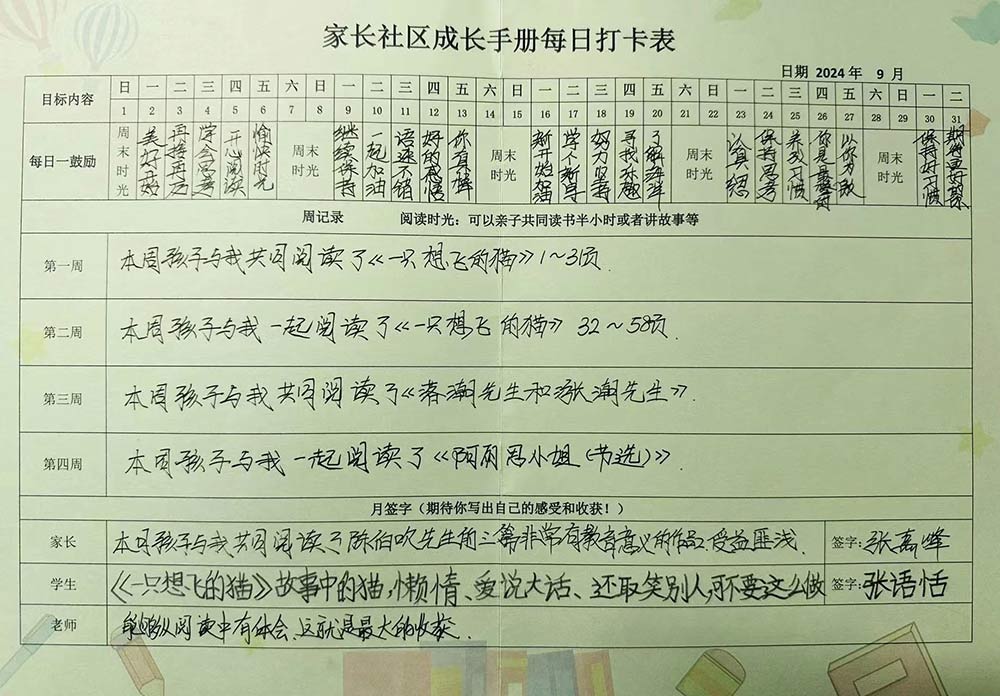 家长社区成长手册每日打卡表
日期 2024年 9 月
目标内容 日 一 二 三 四 五 六 日 一 二 三 四 五 六 日 一 二 三 四 五 六 日 一 二 三 四 五 六 日 一 二
1 2 3 4 5 6 7 8 9 10 11 12 13 14 15 16 17 18 19 20 21 22 23 24 25 26 27 28 29 30 31
每日一鼓励 周末时光 美好开始 再接再厉 学会思考 开心阅读 愉快时光 周末时光 继续保持 一起加油 语速不错 好的感悟 你有最棒 周末时光 新开始加油 努力坚持 寻找乐趣 周末时光 认真 保持思考 养成习惯 你是最 以你为 周末时光 保持好习惯
周记录 阅读时光：可以亲子共同读书半小时或者讲故事等
第一周 本周孩子与我共同阅读了《一只想飞的猫》1～3页.
第二周 本周孩子与我一起阅读了《一只想飞的猫》 32～58页.
第三周 本周孩子与我共同阅读了《落潮先生和涨潮先生》.
第四周 本周孩子与我一起阅读了《阿丽思小姐（节选）》.
月签字（期待你写出自己的感受和收获！）
家长 本月孩子与我共同阅读了陈伯吹先生的三篇非常有教育意义的作品.受益匪浅. 签字: 张嘉峰
学生 《一只想飞的猫》故事中的猫,懒惰、爱说大话、还取笑别人,可不要这么做 签字: 张语恬
老师 能够从阅读中有体会、这就是最大的收获.